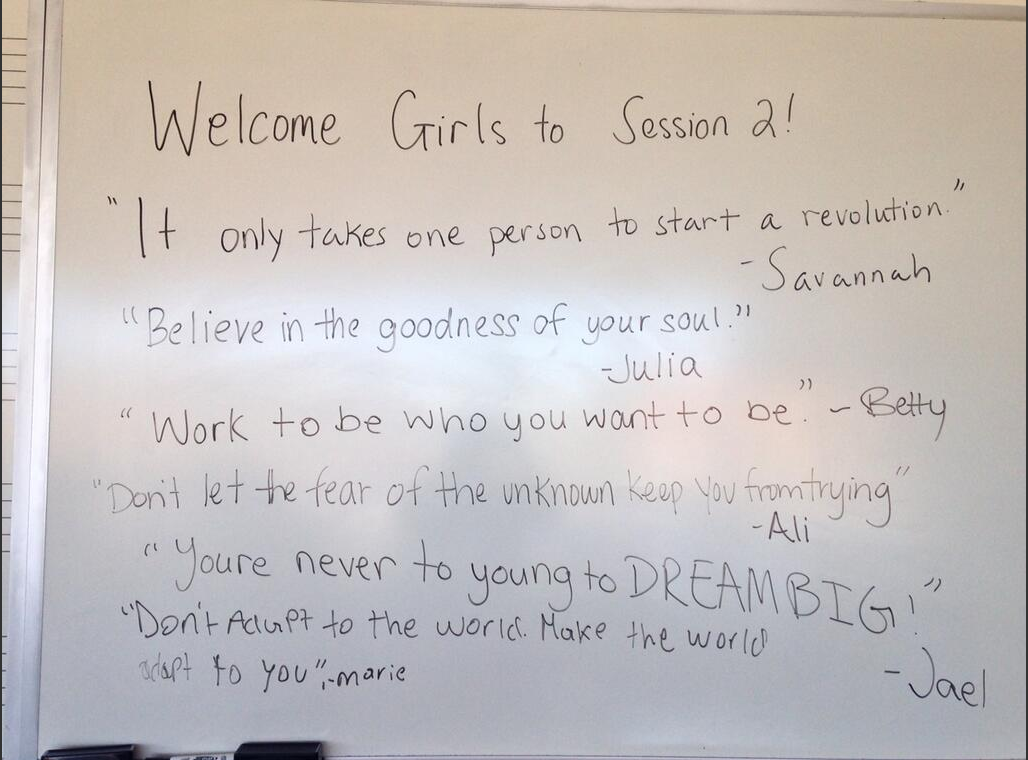 Welcome Girls to Session 2!
"It only takes one person to start a revolution."
-Savannah
"Believe in the goodness of your soul."
-Julia
"Work to be who you want to be." - Betty
"Don't let the fear of the unknown keep you from trying"
-Ali
"Youre never to young to DREAM BIG!"
-Jael
"Don't Adapt to the world. Make the world
adapt to you".-marie